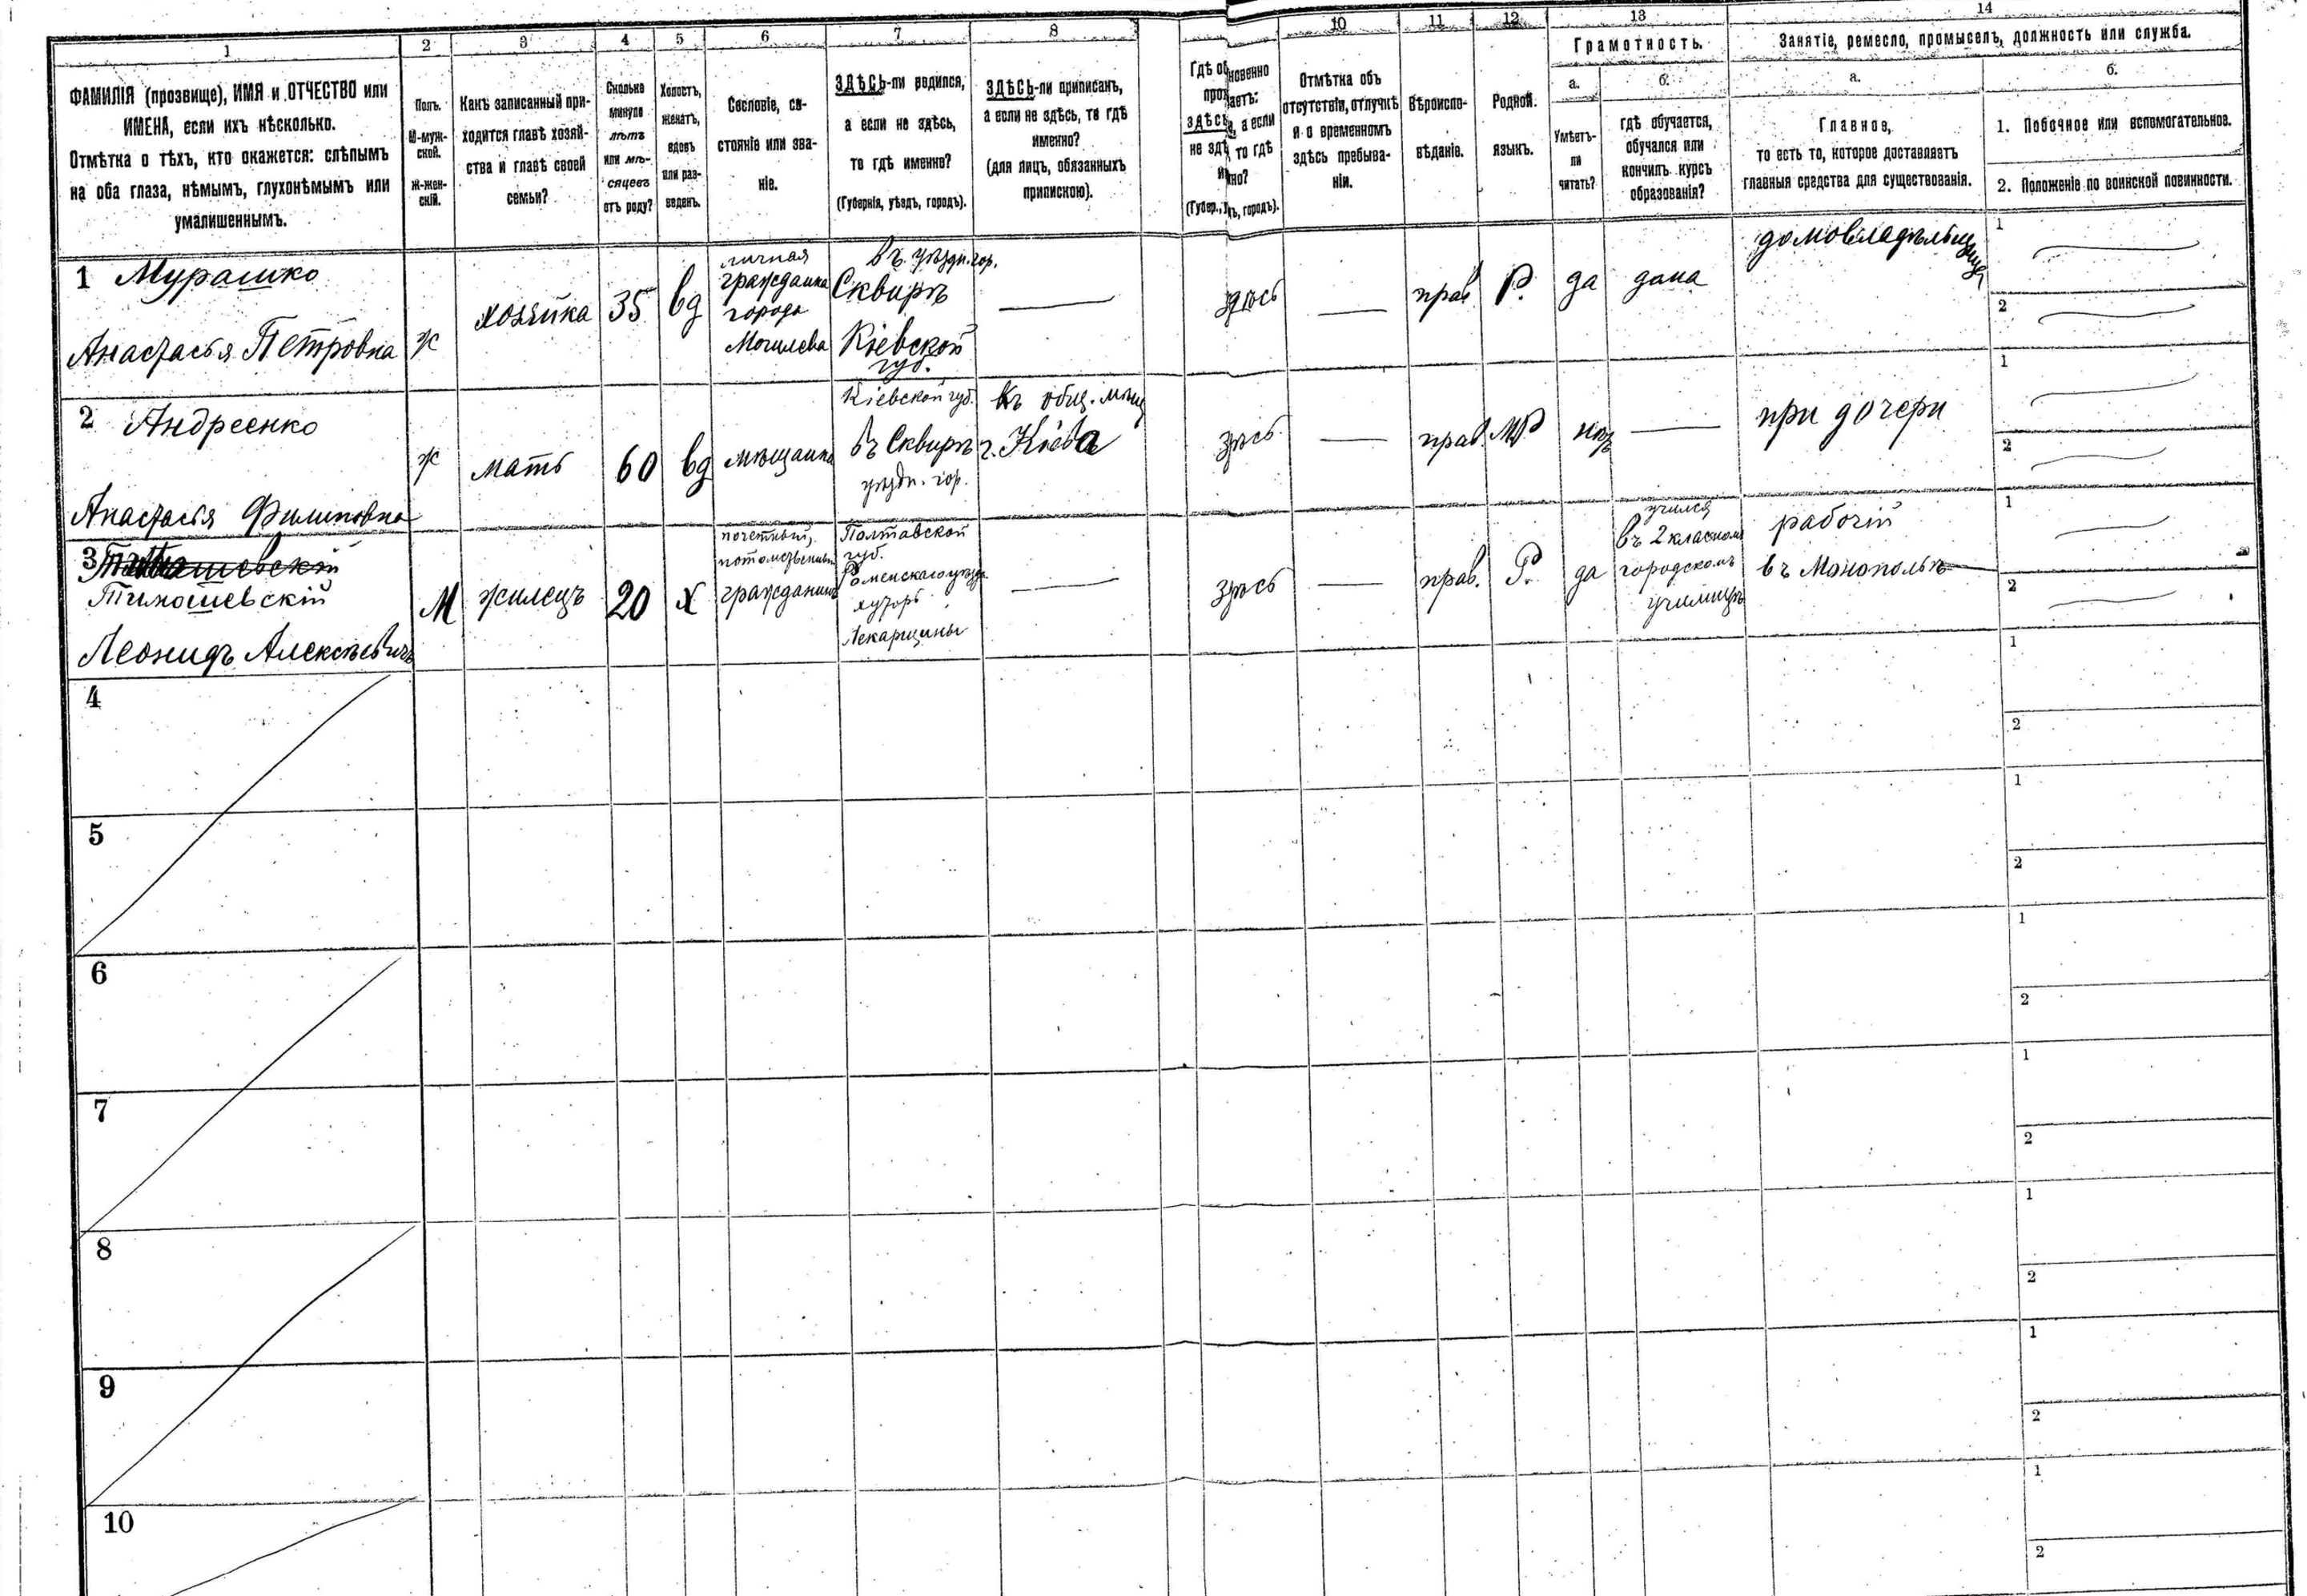 1
2
3
4
5
6
7
8
10
11
12
13
14
ФАМИЛІЯ (прозвище), ИМЯ и ОТЧЕСТВО или
ИМЕНА, если ихъ нѣсколько.
Отмѣтка о тѣхъ, кто окажется: слѣпымъ
на оба глаза, нѣмымъ, глухонѣмымъ или
умалишеннымъ.
Полъ.
М-муж-
ской.
Ж-жен-
скій.
Какъ записанный при-
ходится главѣ хозяй-
ства и главѣ своей
семьи?
Сколько
минуло
лѣтъ
или мѣ-
сяцевъ
отъ роду?
Холостъ,
женатъ,
вдовъ
или раз-
веденъ.
Сословіе, со-
стояніе или зва-
ніе.
ЗДѢСЬ-ли родился,
а если не здѣсь,
то гдѣ именно?
(Губернія, уѣздъ, городъ).
ЗДѢСЬ-ли приписанъ,
а если не здѣсь, то гдѣ
именно?
(для лицъ, обязанныхъ
припискою).
Гдѣ об новенно
прож аетъ:
ЗДѢСЬ, а если
не здѣ то гдѣ
и но?
(Губер., у ъ, городъ).
Отмѣтка объ
отсутствіи, отлучкѣ
и о временномъ
здѣсь пребыва-
ніи.
Вѣроиспо-
вѣданіе.
Родной.
языкъ.
Грамотность.
а.
Умѣетъ-
ли
читать?
б.
гдѣ обучается,
обучался или
кончилъ курсъ
образованія?
Занятіе, ремесло, промыселъ, должность или служба.
а.
Главное,
то есть то, которое доставляетъ
главныя средства для существованія.
б.
1. Побочное или вспомогательное.
2. Положеніе по воинской повинности.
1 Мурашко
Анастасья Петровна
ж
хозяйка
35
вд
личная
гражданка
города
Могилева
въ уѣздн. гор.
Сквирѣ
Кіевской
губ.
здѣсь
прав
Р.
да
дома
домовладѣлица
1
2
2 Андреенко
Анастасья Филиповна
ж
мать
60
вд
мѣщанка
Кіевской губ.
въ Сквирѣ
уѣздн. гор.
къ общ. мѣщ
г. Кіева
здѣсь
прав.
МР
нѣт
при дочери
1
2
3
Тимошевскій
Леонидъ Алексѣевичъ
М
жилецъ
20
х
почетный,
потомственный
гражданинъ
Полтавской
губ.
Роменскаго уѣзда
хуторъ
Лекарщины
здѣсь
прав.
Р.
да
учился
въ 2 классномъ
городскомъ
училищѣ
рабочій
въ Монопольѣ
1
2
4
1
2
5
1
2
6
1
2
7
1
2
8
1
2
9
1
2
10
1
2